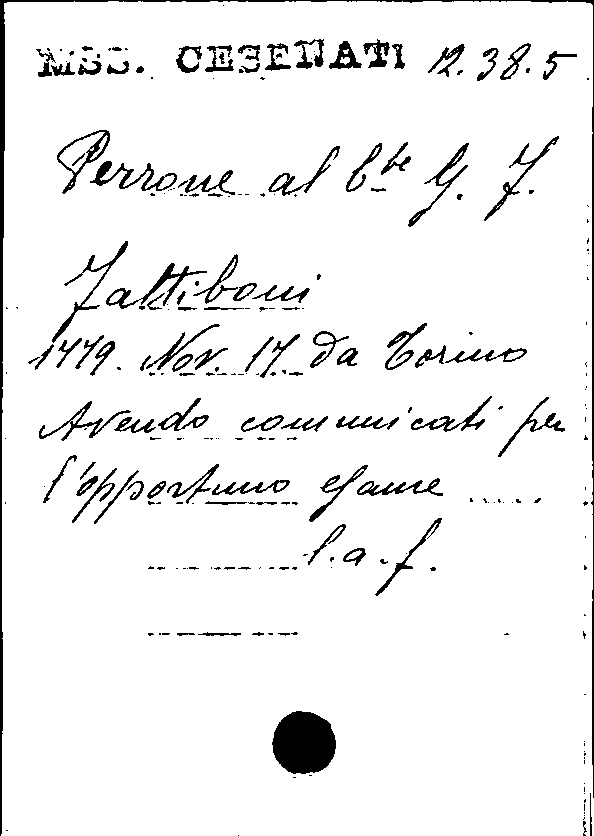 MSS. CESENATI 12.38.5
Perrone al C.te G. F.
Fattiboni
1779. Nov. 17. da Torino
Avendo comunicati per
l'opportuno esame .....
l.a.f.